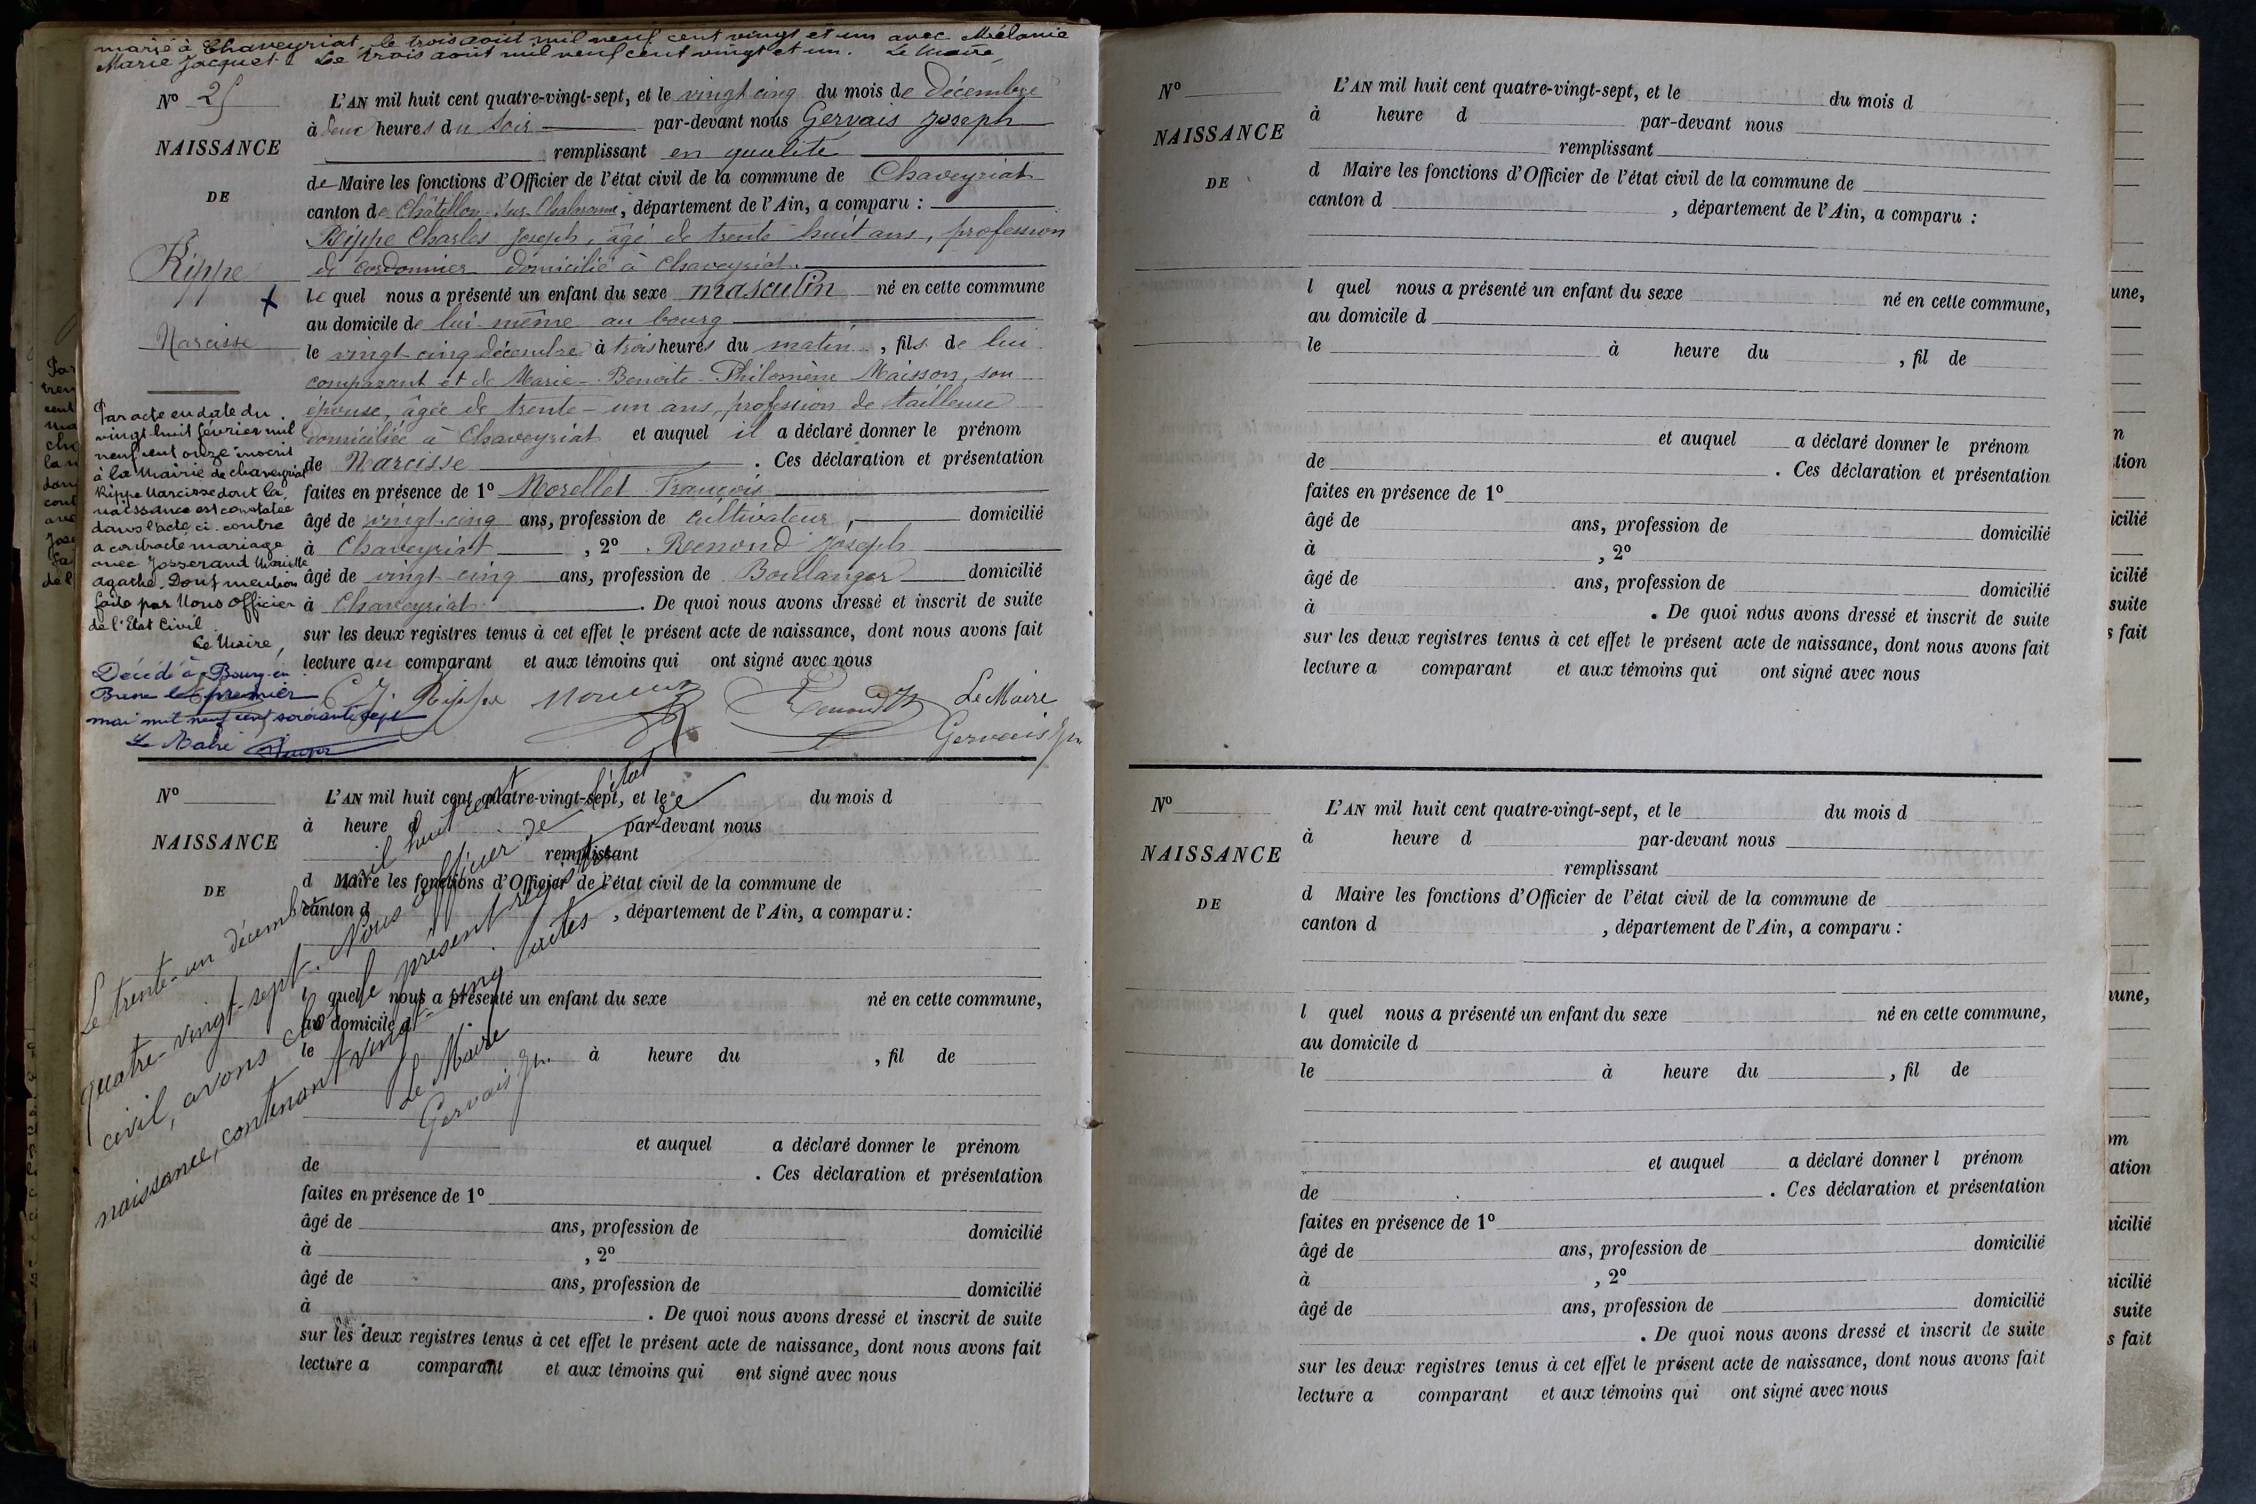 marié à Chaveyriat le trois août mil neuf cent vingt et un avec Mélanie
Marie Jacquet. Le trois août mil neuf cent vingt et un. Le Maire,
N° 25
NAISSANCE
DE
Rippe
Narcisse
L'AN mil huit cent quatre-vingt-sept, et le vingt cinq du mois de Décembre
à deux heures du soir par-devant nous Gervais Joseph
remplissant en qualité
de Maire les fonctions d'Officier de l'état civil de la commune de Chaveyriat
canton de Châtillon-sur-Chalaronne, département de l'Ain, a comparu :
Rippe Charles Joseph, âgé de trente huit ans, profession
de cordonnier domicilié à Chaveyriat.
lequel nous a présenté un enfant du sexe masculin né en cette commune
au domicile de lui-même au bourg
le vingt-cinq décembre à trois heures du matin, fils de lui
comparant et de Marie-Benoite-Philomène Maisson, son
épouse, âgée de trente-un ans, profession de tailleuse
domiciliée à Chaveyriat et auquel il a déclaré donner le prénom
de Narcisse. Ces déclaration et présentation
faites en présence de 1° Morellet François
âgé de vingt-cinq ans, profession de cultivateur, domicilié
à Chaveyriat, 2° Renond Joseph
âgé de vingt-cinq ans, profession de Boulanger domicilié
à Chaveyriat. De quoi nous avons dressé et inscrit de suite
sur les deux registres tenus à cet effet le présent acte de naissance, dont nous avons fait
lecture au comparant et aux témoins qui ont signé avec nous
C. J. Rippe
Le Maire
Gervais Jh
Par acte en date du
vingt-huit février mil
neuf cent onze inscrit
à la Mairie de Chaveyriat
Rippe Narcisse dont la
naissance est constatée
dans l'acte ci-contre
a contracté mariage
avec Josserand Mariette
Agathe. Dont mention
faite par Nous Officier
de l'Etat Civil
Le Maire,
Décédé à Bourg-en
Bresse le premier
mai mil neuf cent soixante sept
Le Maire
N°
NAISSANCE
DE
L'AN mil huit cent quatre-vingt-sept, et le du mois d
à heure d par-devant nous
remplissant
d Maire les fonctions d'Officier de l'état civil de la commune de
canton d , département de l'Ain, a comparu :
l quel nous a présenté un enfant du sexe né en cette commune,
au domicile d
le à heure du , fil de
et auquel a déclaré donner le prénom
de . Ces déclaration et présentation
faites en présence de 1°
âgé de ans, profession de domicilié
à , 2°
âgé de ans, profession de domicilié
à . De quoi nous avons dressé et inscrit de suite
sur les deux registres tenus à cet effet le présent acte de naissance, dont nous avons fait
lecture a comparant et aux témoins qui ont signé avec nous
Le trente-un décembre mil huit cent
quatre-vingt-sept. Nous officier de l'état
civil, avons clos le présent registre de
naissance, contenant vingt-cinq actes
Le Maire
Gervais Jh
N°
NAISSANCE
DE
L'AN mil huit cent quatre-vingt-sept, et le du mois d
à heure d par-devant nous
remplissant
d Maire les fonctions d'Officier de l'état civil de la commune de
canton d , département de l'Ain, a comparu :
l quel nous a présenté un enfant du sexe né en cette commune,
au domicile d
le à heure du , fil de
et auquel a déclaré donner le prénom
de . Ces déclaration et présentation
faites en présence de 1°
âgé de ans, profession de domicilié
à , 2°
âgé de ans, profession de domicilié
à . De quoi nous avons dressé et inscrit de suite
sur les deux registres tenus à cet effet le présent acte de naissance, dont nous avons fait
lecture a comparant et aux témoins qui ont signé avec nous
N°
NAISSANCE
DE
L'AN mil huit cent quatre-vingt-sept, et le du mois d
à heure d par-devant nous
remplissant
d Maire les fonctions d'Officier de l'état civil de la commune de
canton d , département de l'Ain, a comparu :
l quel nous a présenté un enfant du sexe né en cette commune,
au domicile d
le à heure du , fil de
et auquel a déclaré donner l prénom
de . Ces déclaration et présentation
faites en présence de 1°
âgé de ans, profession de domicilié
à , 2°
âgé de ans, profession de domicilié
. De quoi nous avons dressé et inscrit de suite
sur les deux registres tenus à cet effet le présent acte de naissance, dont nous avons fait
lecture a comparant et aux témoins qui ont signé avec nous